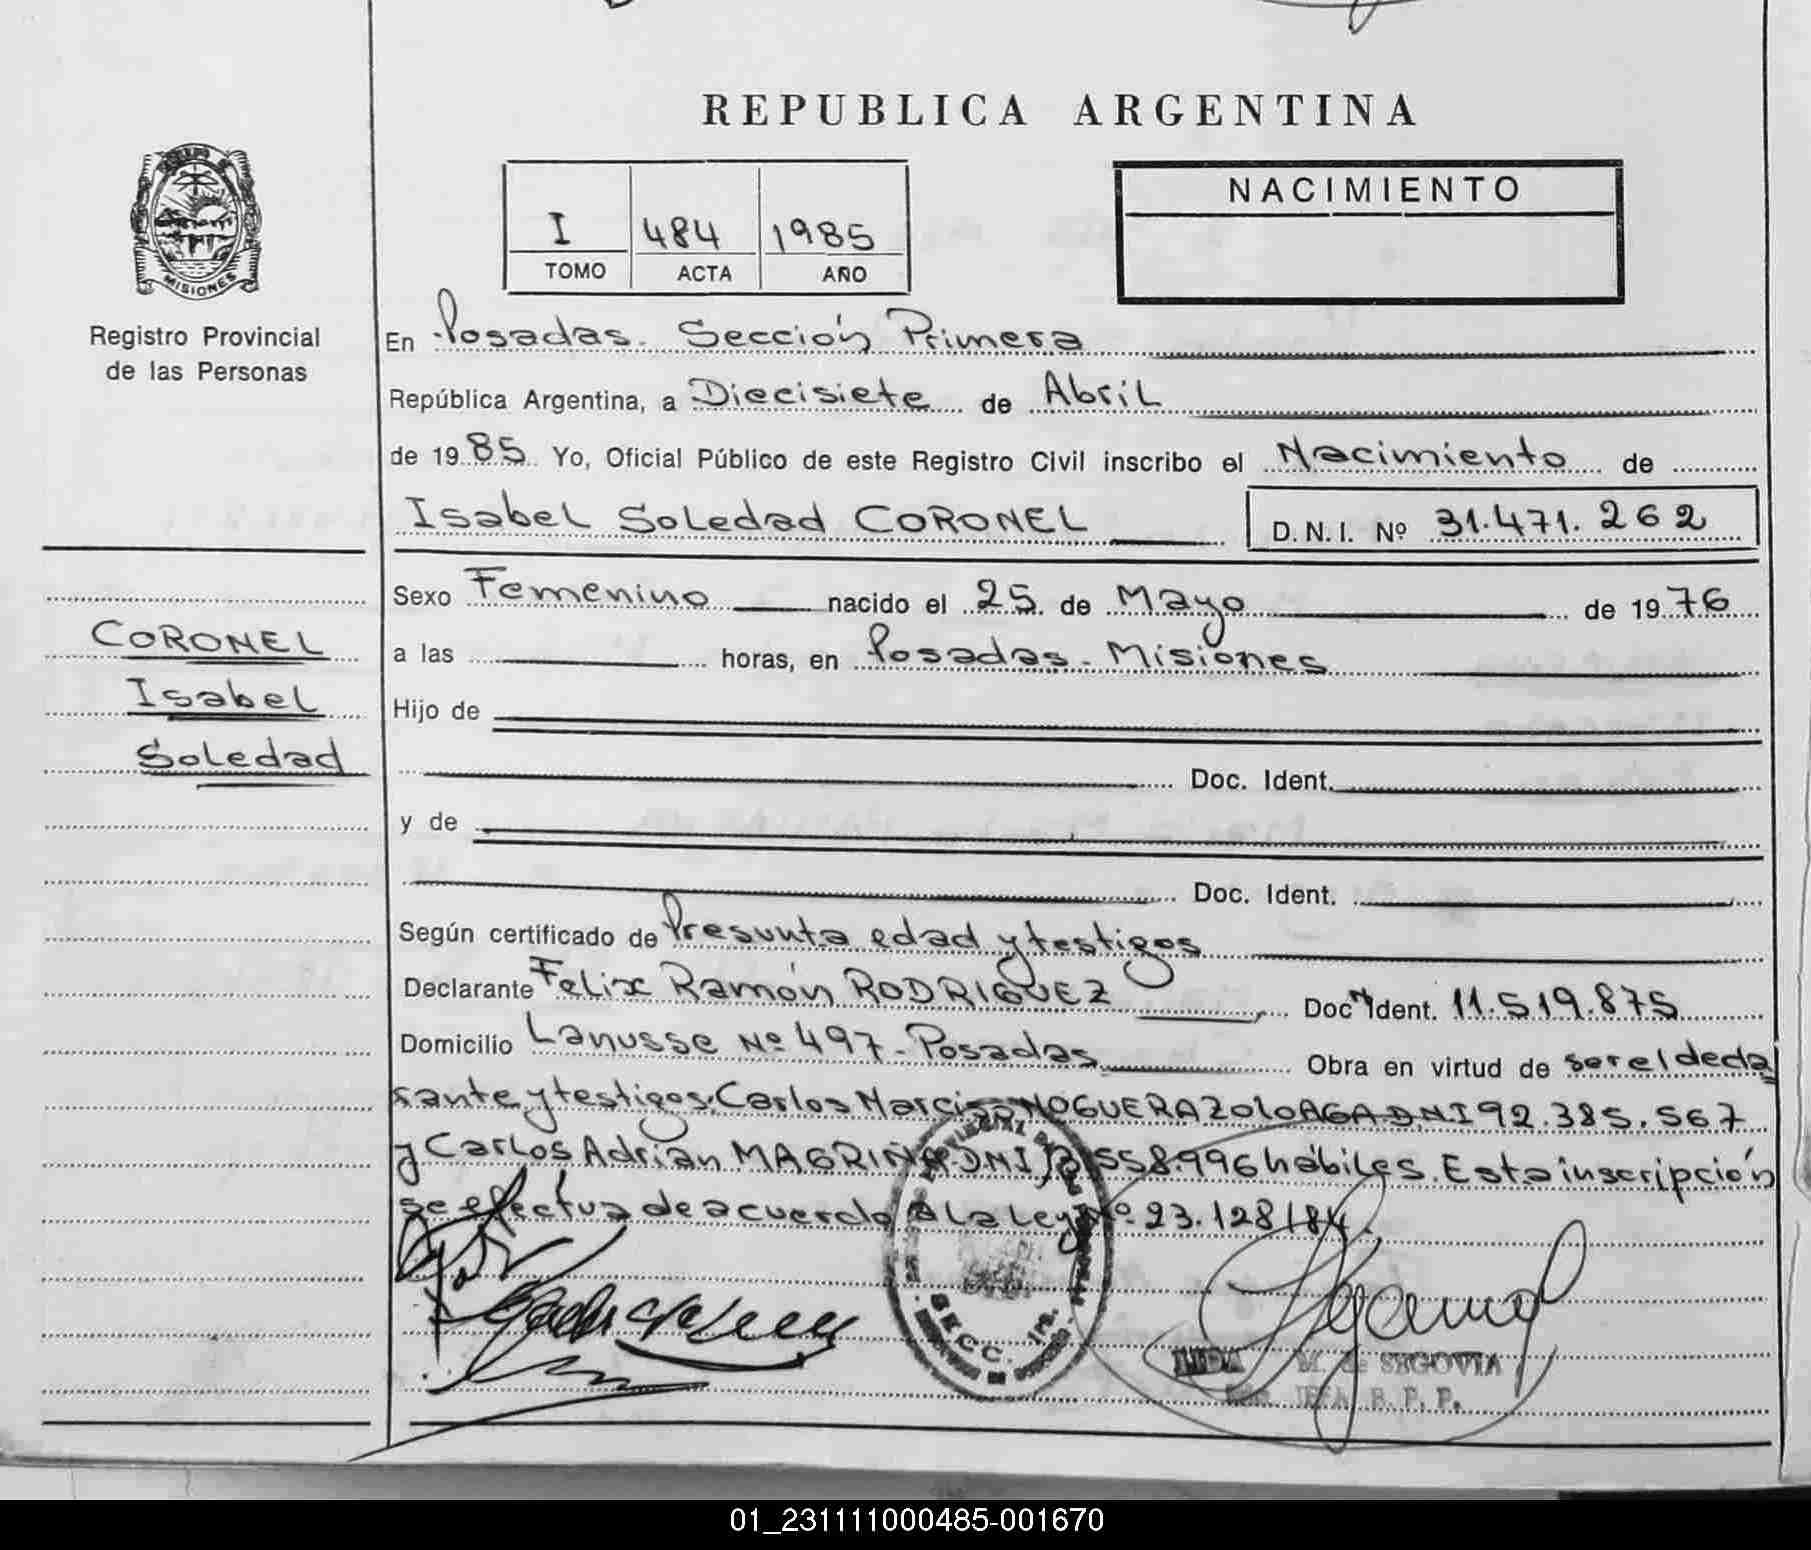 REPUBLICA ARGENTINA
I 484 1985
TOMO ACTA AÑO
NACIMIENTO
MISIONES
Registro Provincial
de las Personas
CORONEL
Isabel
Soledad
En Posadas. Sección Primera
República Argentina, a Diecisiete de Abril
de 1985 Yo, Oficial Público de este Registro Civil inscribo el Nacimiento de
Isabel Soledad CORONEL D.N.I. Nº 31.471.262
Sexo Femenino nacido el 25 de Mayo de 1976
a las horas, en Posadas - Misiones
Hijo de
Doc. Ident.
y de
Doc. Ident.
Según certificado de Presunta edad y testigos
Declarante Felix Ramón RODRIGUEZ Doc. Ident. 11.519.875
Domicilio Lanusse Nº 497 - Posadas Obra en virtud de ser el decla
rante y testigos. Carlos NOGUERA DNI 92.385.567
y Carlos Adrián DNI habiles. Esta inscripción
se efectua de acuerdo a la Ley Nº 23.128/84.
SECC. 1ra.
M. de SEGOVIA
JEFA R. P. P.
01_231111000485-001670